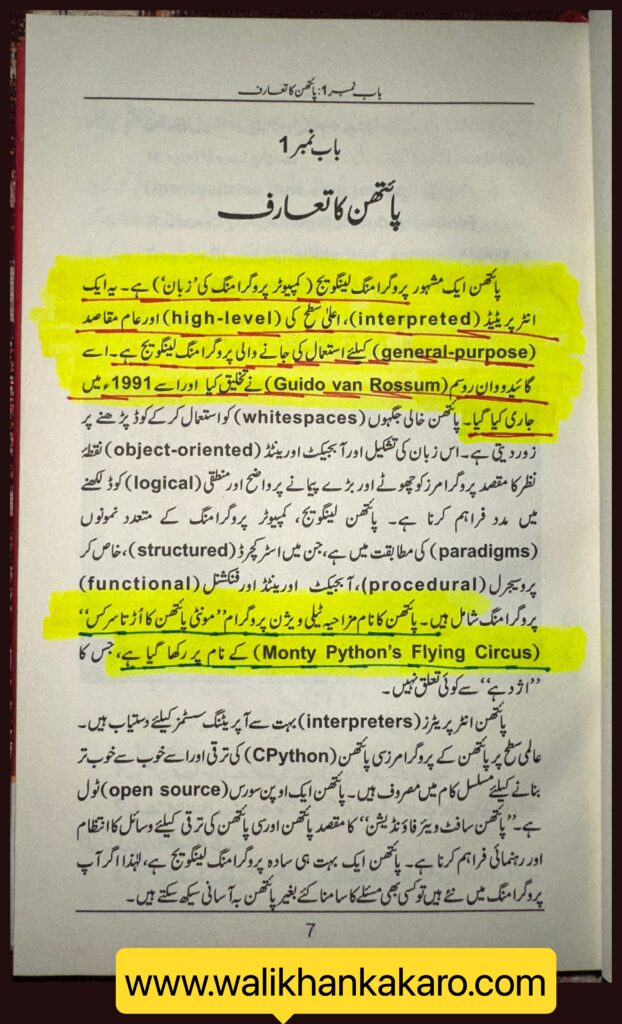 باب نمبر 1: پائتھن کا تعارف
باب نمبر 1
پائتھن کا تعارف
پائتھن ایک مشہور پروگرامنگ لینگویج (کمپیوٹر پروگرامنگ کی 'زبان') ہے۔ یہ ایک
انٹرپریٹیڈ (interpreted)، اعلیٰ سطح کی (high-level) اور عام مقاصد
(general-purpose) کیلئے استعمال کی جانے والی پروگرامنگ لینگویج ہے۔ اسے
گائیڈو وان روسم (Guido van Rossum) نے تخلیق کیا اور اسے 1991ء میں
جاری کیا گیا۔ پائتھن خالی جگہوں (whitespaces) کو استعمال کر کے کوڈ پڑھنے پر
زور دیتی ہے۔ اس زبان کی تشکیل اور آبجیکٹ اورینٹڈ (object-oriented) نقطۂ
نظر کا مقصد پروگرامرز کو چھوٹے اور بڑے پیمانے پر واضح اور منطقی (logical) کوڈ لکھنے
میں مدد فراہم کرنا ہے۔ پائتھن لینگویج، کمپیوٹر پروگرامنگ کے متعدد نمونوں
(paradigms) کی مطابقت میں ہے، جن میں اسٹرکچرڈ (structured)، خاص کر
پروسیجرل (procedural)، آبجیکٹ اورینٹڈ اور فنکشنل (functional)
پروگرامنگ شامل ہیں۔ پائتھن کا نام مزاحیہ ٹیلی ویژن پروگرام ”مونٹی پائتھن کا اُڑتا سرکس“
(Monty Python's Flying Circus) کے نام پر رکھا گیا ہے، جس کا
”اژدہے“ سے کوئی تعلق نہیں۔
پائتھن انٹرپریٹرز (interpreters) بہت سے آپریٹنگ سسٹمز کیلئے دستیاب ہیں۔
عالمی سطح پر پائتھن کے پروگرامرز سی پائتھن (CPython) کی ترقی اور اسے خوب سے خوب تر
بنانے کیلئے مسلسل کام میں مصروف ہیں۔ پائتھن ایک اوپن سورس (open source) ٹول
ہے۔ ”پائتھن سافٹ ویئر فاؤنڈیشن“ کا مقصد پائتھن اور سی پائتھن کی ترقی کیلئے وسائل کا انتظام
اور رہنمائی فراہم کرنا ہے۔ پائتھن ایک بہت ہی سادہ پروگرامنگ لینگویج ہے، لہٰذا اگر آپ
پروگرامنگ میں نئے ہیں تو کسی بھی مسئلے کا سامنا کئے بغیر پائتھن بہ آسانی سیکھ سکتے ہیں۔
7
www.walikhankakaro.com